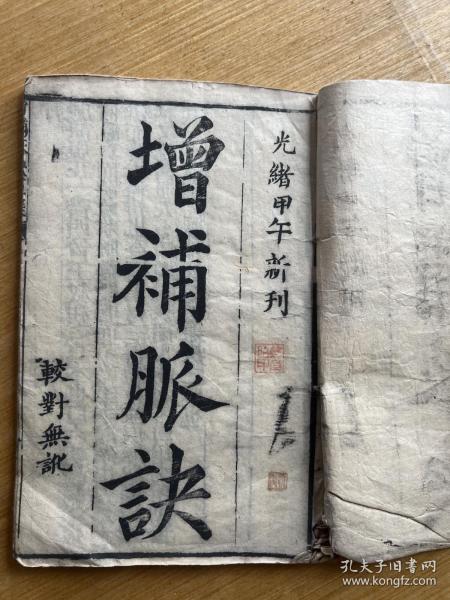 光緒甲午新刊
增補脈訣
較對無訛
孔夫子旧书网
www.kongfz.com